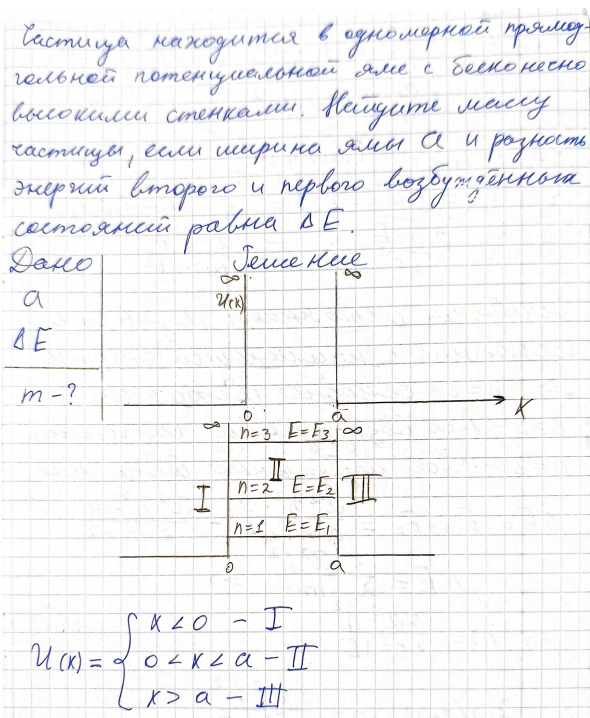 Частица находится в одномерной прямоу-
гольной потенциальной яме с бесконечно
высокими стенками. Найдите массу
частицы, если ширина ямы a и разность
энергий второго и первого возбуждённых
состояний равна ΔE.
Дано Решение
a
ΔE
m - ?
∞ ∞
U(x)
0 a x
∞ n=3 E=E₃ ∞
II
I n=2 E=E₂ III
n=1 E=E₁
0 a
x < 0 - I
U(x) = { 0 < x < a - II
x > a - III